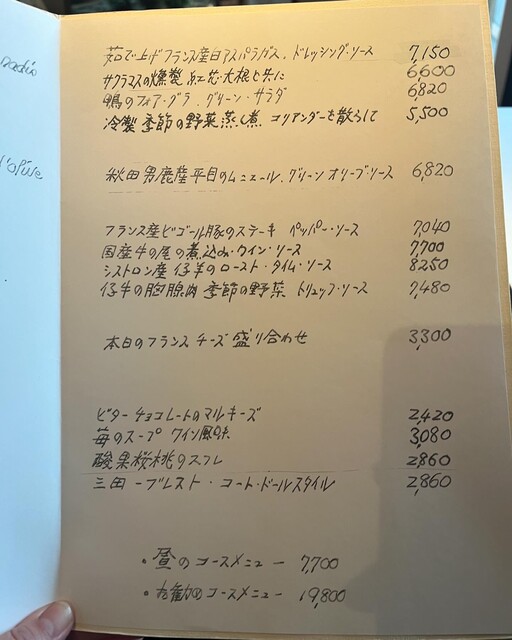 radis
l'olive
茹で上げフランス産白アスパラガス、ドレッシング・ソース 7,150
サクラマスの燻製 紅芯大根と共に 6,600
鴨のフォア・グラ グリーン・サラダ 6,820
冷製 季節の野菜蒸し煮 コリアンダーを散らして 5,500
秋田男鹿産平目のムニエール、グリーンオリーブ・ソース 6,820
フランス産ビゴール豚のステーキ ペッパー・ソース 7,040
国産牛の尾の煮込み・ワイン・ソース 7,700
シストロン産 仔羊のロースト・タイム・ソース 8,250
仔牛の胸腺肉 季節の野菜 トリュフ・ソース 7,480
本日のフランスチーズ 盛り合わせ 3,300
ビターチョコレートのマルキーズ 2,420
苺のスープ ワイン風味 3,080
酸果桜桃のスフレ 2,860
三田 ーブレスト・コート・ドールスタイル 2,860
・昼のコースメニュー 7,700
・お勧めコースメニュー 19,800